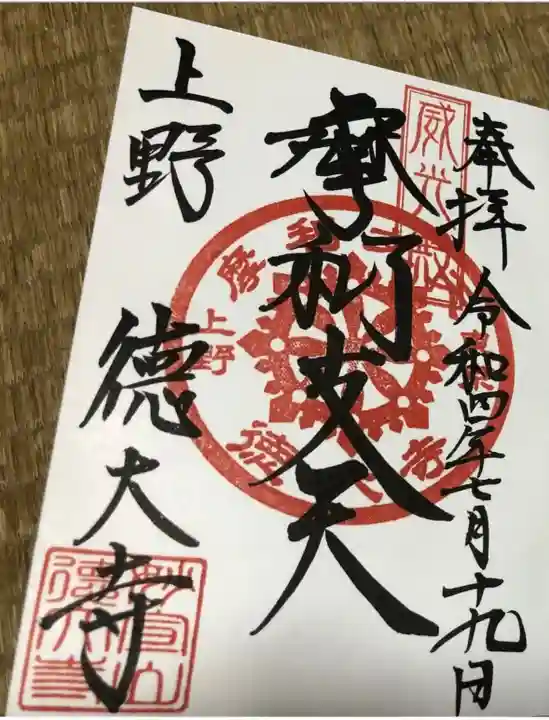 奉拝 令和四年七月十九日
摩利支天
上野 徳大寺
威光
摩利
上野
徳大寺
妙宣山徳大寺